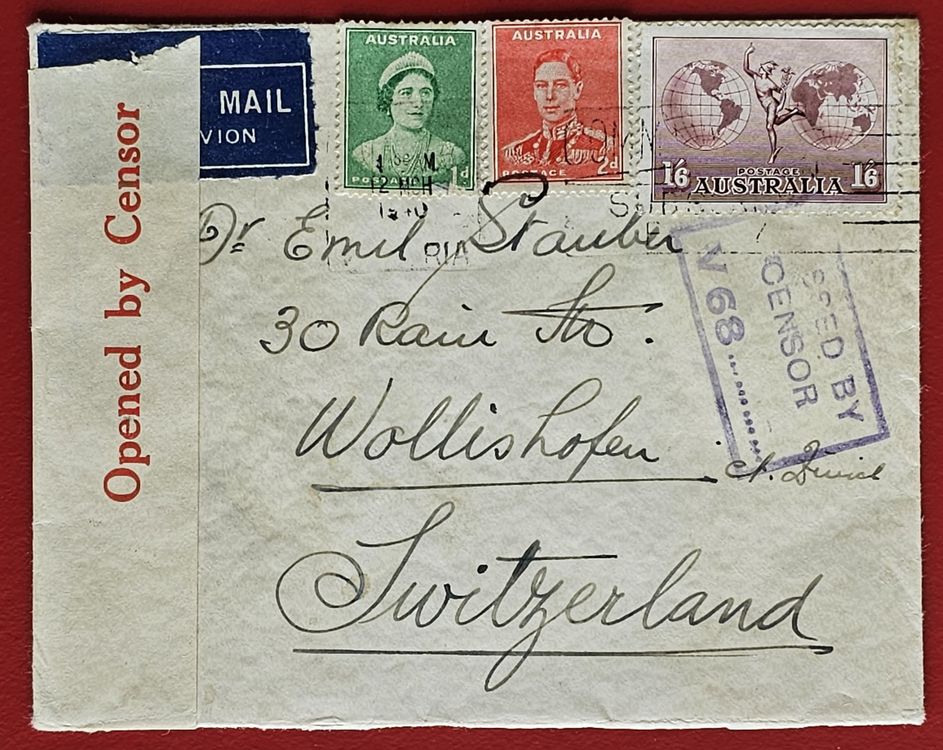 MAIL
VION
Opened by Censor
AUSTRALIA
POSTAGE 1d
AUSTRALIA
POSTAGE 2d
1/6 POSTAGE AUSTRALIA 1/6
12 MCH
1940
RIA
Dr Emil Stauber
30 Rain Str.
Wollishofen
Switzerland
SSED BY
CENSOR
V 68